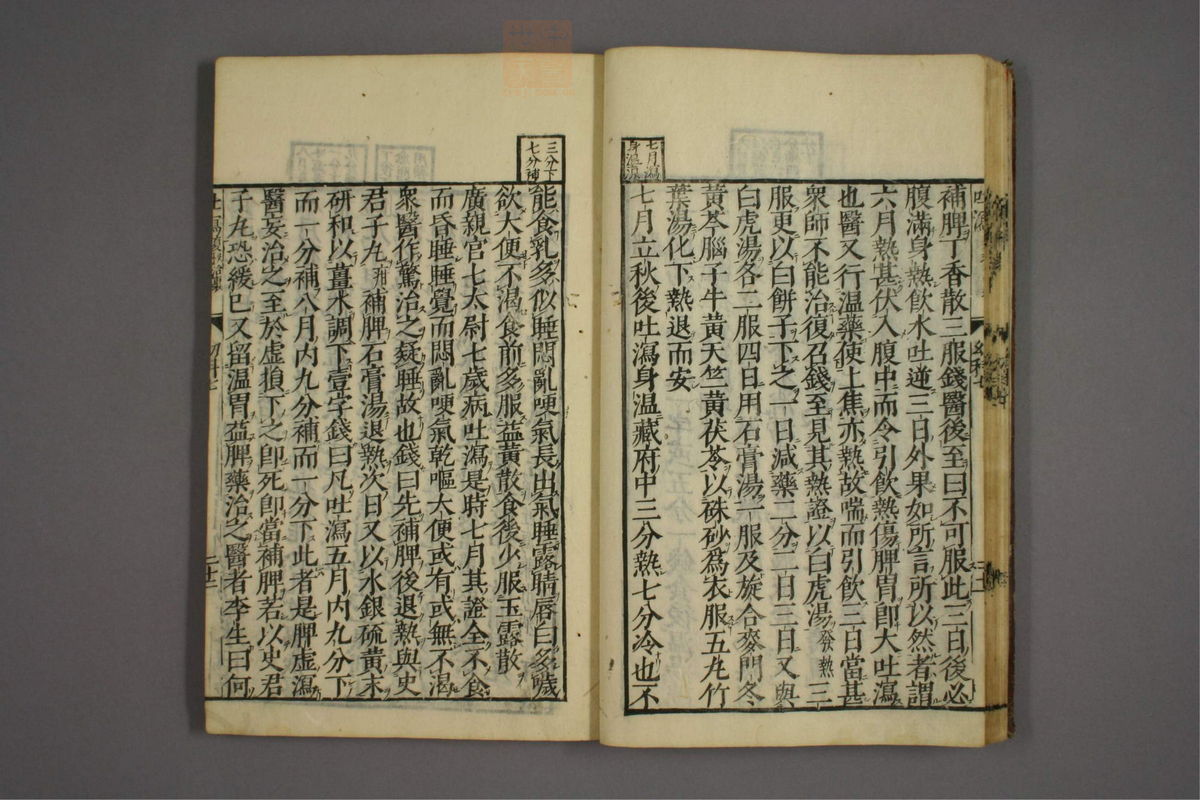 補脾丁香散三服錢醫後至曰不可服此三日後必
腹滿身熱飲水吐逆三日外果如所言所以然者謂
六月熱甚伏入腹中而令引飲熱傷脾胃卽大吐瀉
也醫又行温藥使上焦亦熱故喘而引飲三日當甚
衆師不能治復召錢至見其熱證以白虎湯發熱三
服更以白餅子下之一日減藥二分二日三日又與
白虎湯各二服四日用石膏湯一服及旋合麥門冬
黃芩腦子牛黃天竺黃茯苓以硃砂爲衣服五丸竹
葉湯化下熱退而安
七月瀉
身温治
七月立秋後吐瀉身温藏府中三分熱七分冷也不
三分下
七分補
能食乳多似睡悶亂哽氣長出氣睡露睛唇白多噦
欲大便不渴食前多服益黃散食後少服玉露散
廣親官七太尉七歲病吐瀉是時七月其證全不食
而昏睡睡覺而悶亂哽氣乾嘔大便或有或無不渴
衆醫作驚治之疑睡故也錢曰先補脾後退熱與史
君子丸補脾石膏湯退熱次日又以水銀硫黃末
研和以薑水調下壹字錢曰凡吐瀉五月内九分下
而一分補八月内九分補而一分下此者是脾虚瀉
醫妄治之至於虚損下之卽死卽當補脾若以史君
子丸恐緩已又留温胃益脾藥治之醫者李生曰何